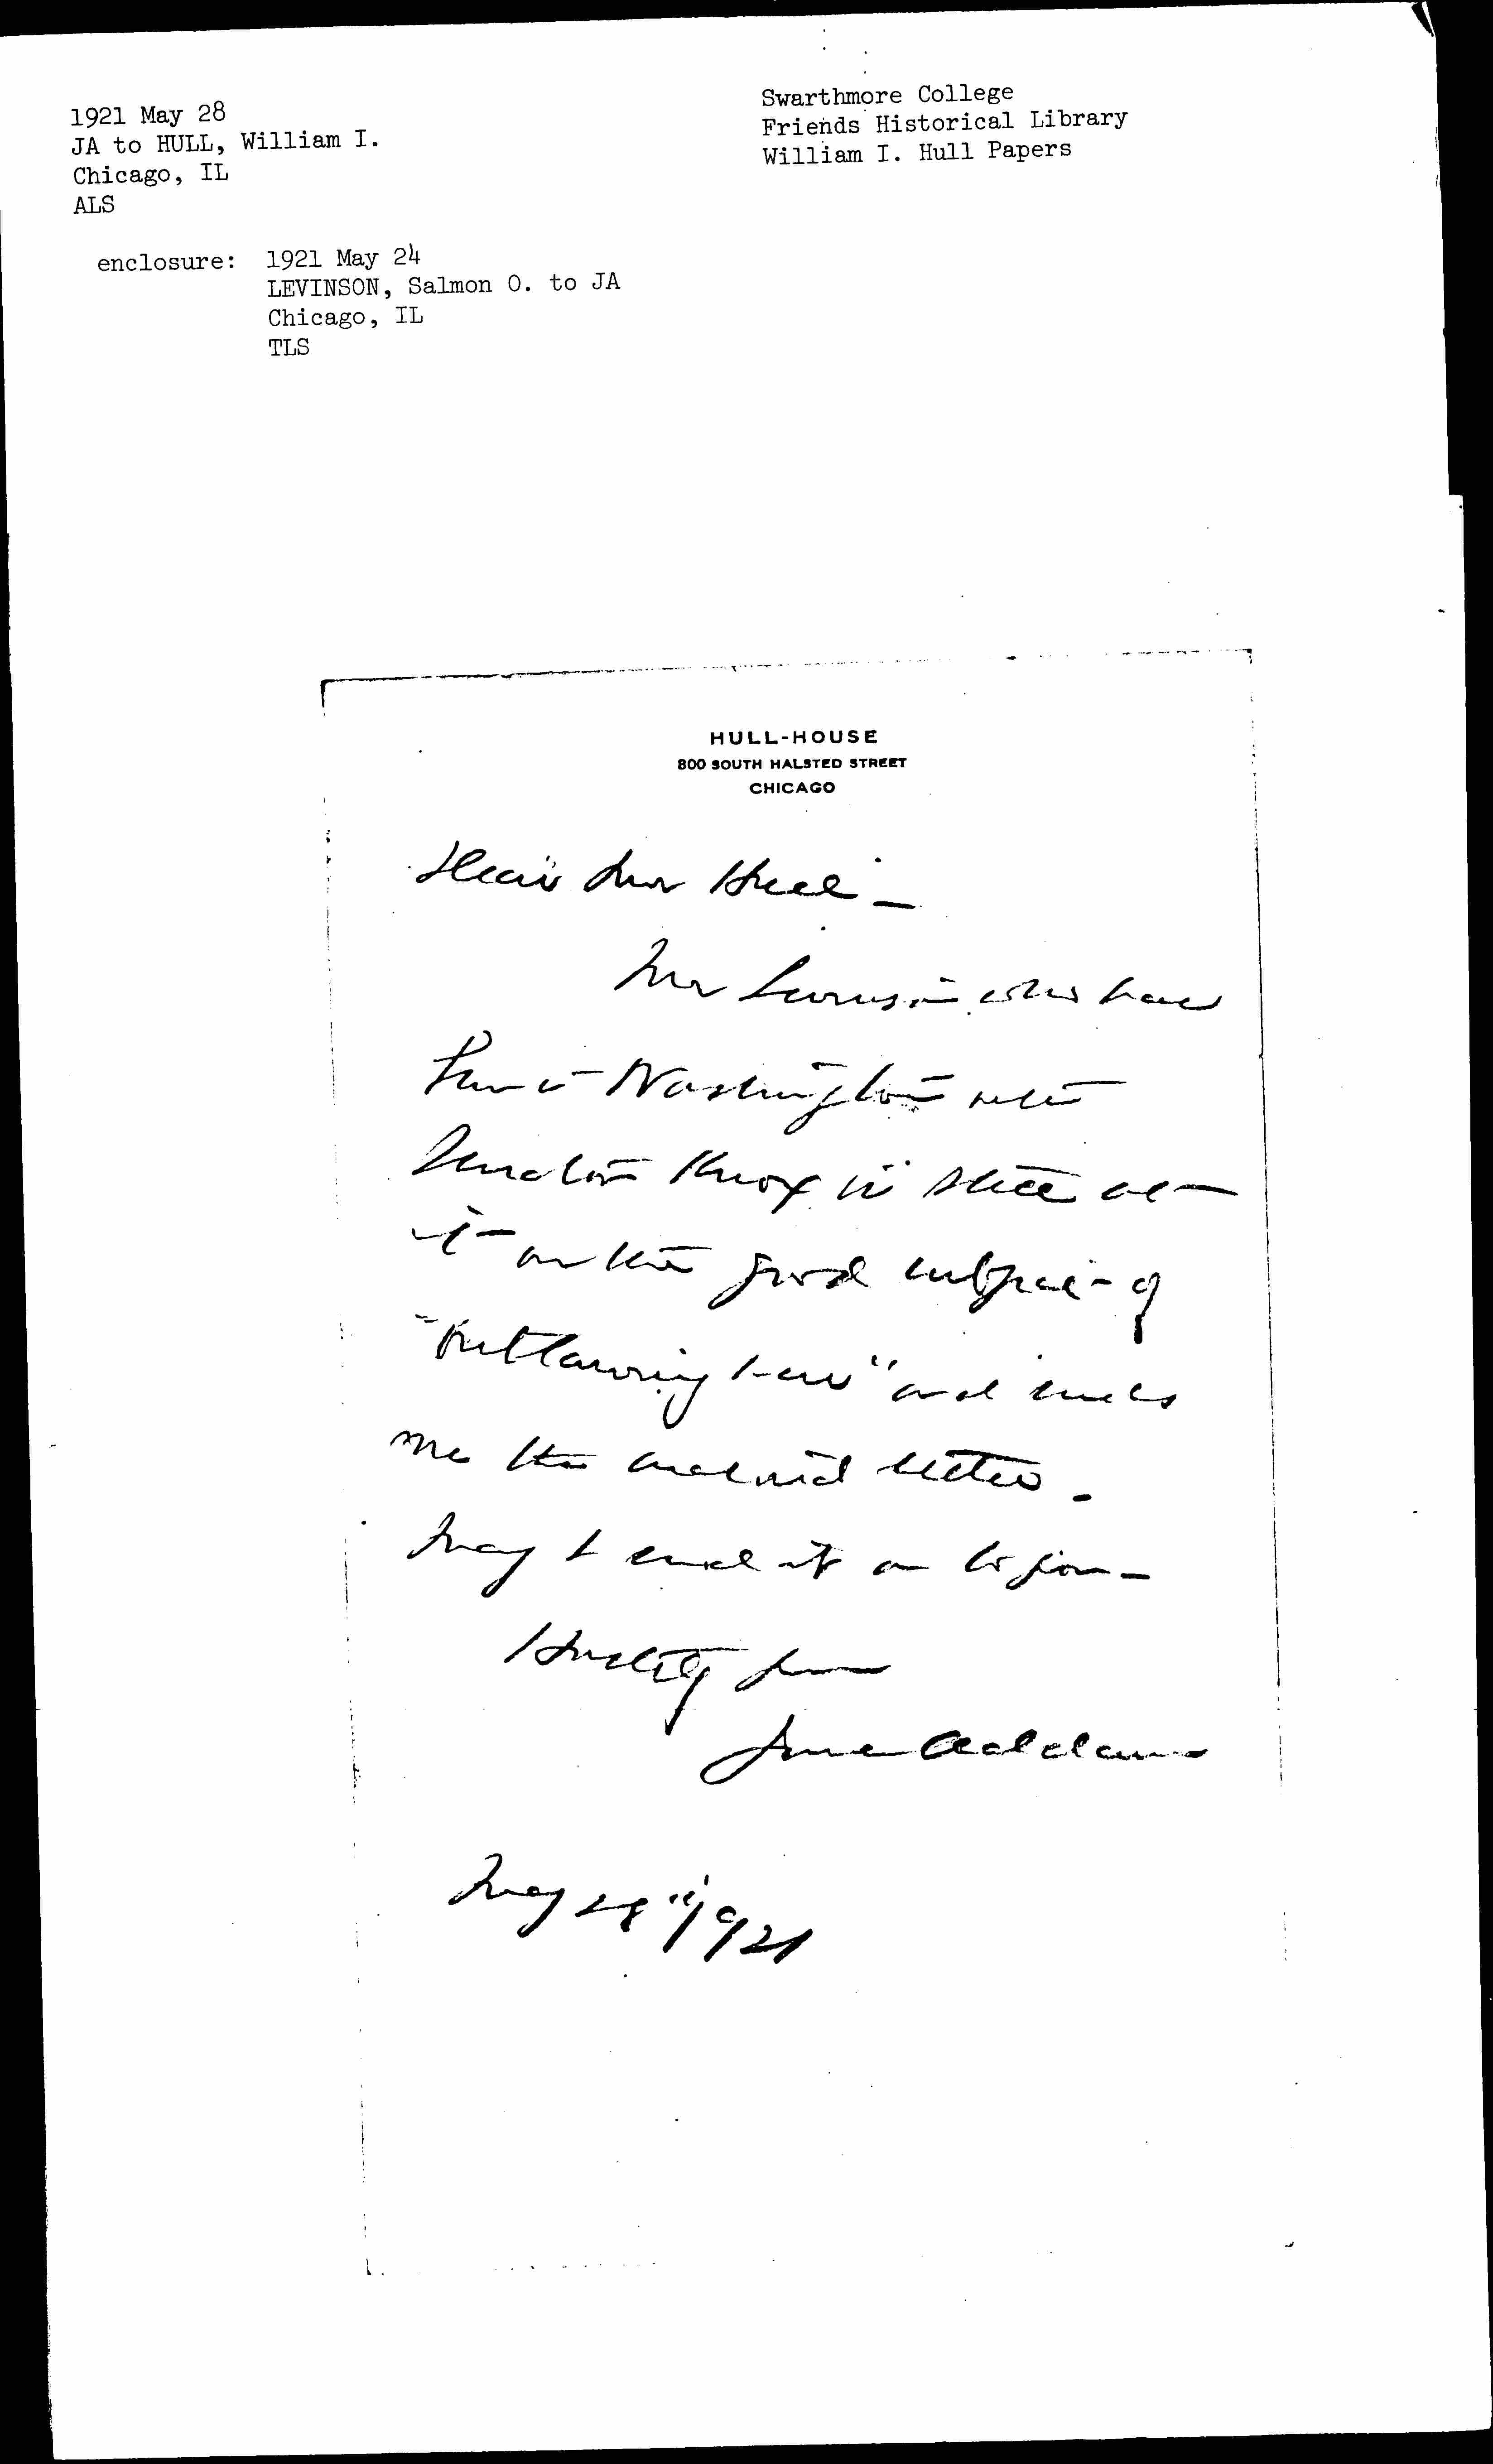 1921 May 28
JA to HULL, William I.
Chicago, IL
ALS
enclosure: 1921 May 24
LEVINSON, Salmon O. to JA
Chicago, IL
TLS
Swarthmore College
Friends Historical Library
William I. Hull Papers
HULL-HOUSE
800 SOUTH HALSTED STREET
CHICAGO
Dear Mr Hull –
Mr Levinson who has
been in Washington with
Senator Knox is still at
it on the good subject of
"Outlawing War" and sends
me the enclosed letter –
May I send it on to you –
Hastily yours
Jane Addams
May 28" 1921